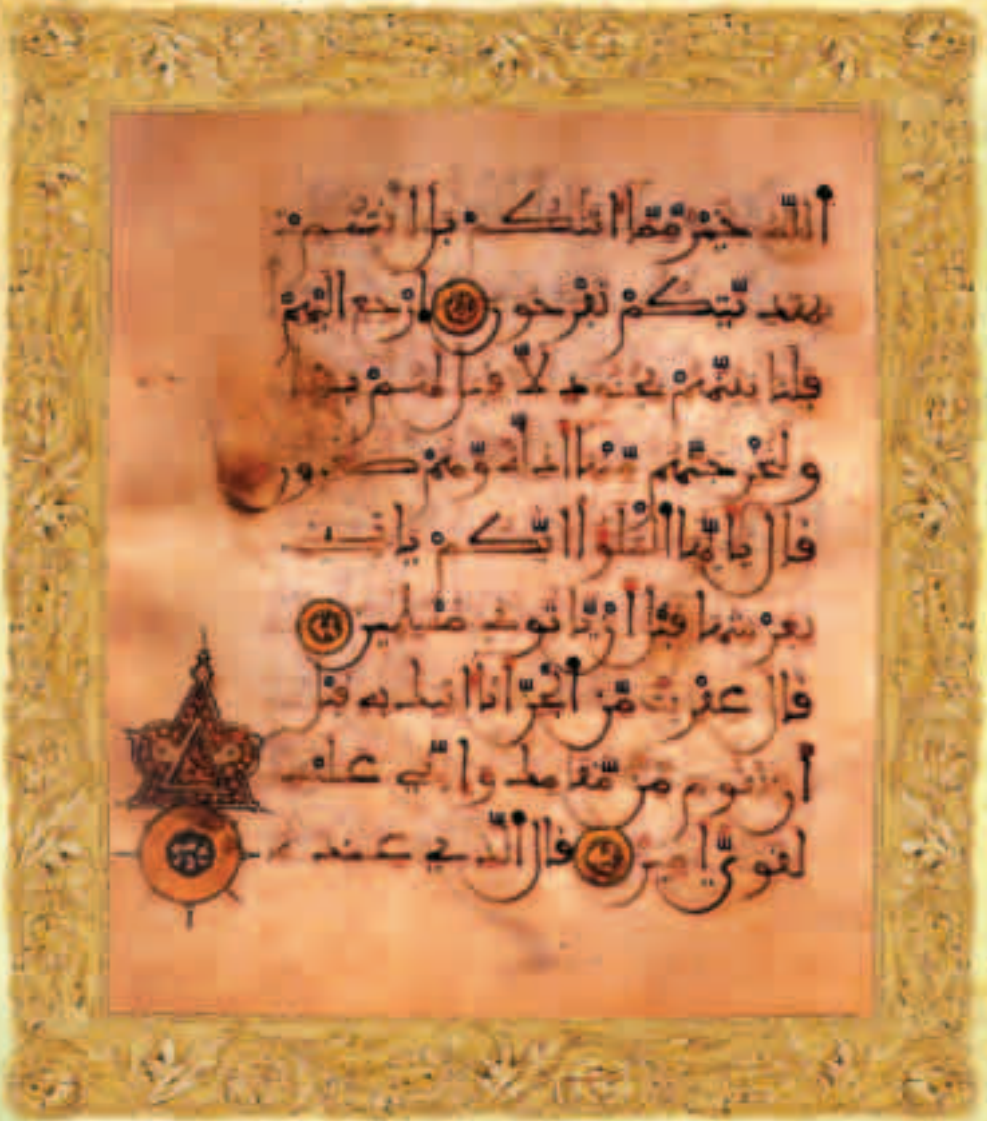 ٱللَّه خَيْرٌ مِّمَّا ءاتىٰكُم بَلْ أَنتُم
بهديَّتكمْ تفرحون ٱرْجع إليهمْ
فلنأتينّهمْ بجنود لّا قبل لهم بها
ولنخْرجنّهم مّنْها أذلّة وّهمْ صغرون
قال يأيّها ٱلملؤا أيّكمْ يأتينے
بعرْشها قبْل أنْ يّأتونے مسْلمين
قال عفْريت مّن ٱلْجنّ أنا ءاتيك به قبْل
أن تقوم من مّقامك وإنّي عليْه
لقوىّ أمين قال ٱلّذے عنده